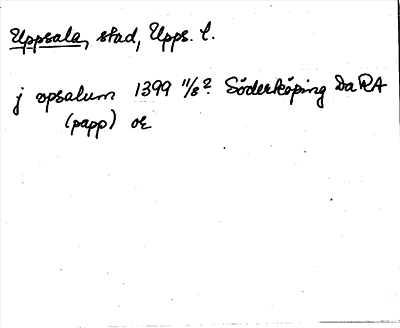 Uppsala, stad, Upps. l.
j opsalum 1399 11/8? Söderköping DaRA
(papp) or